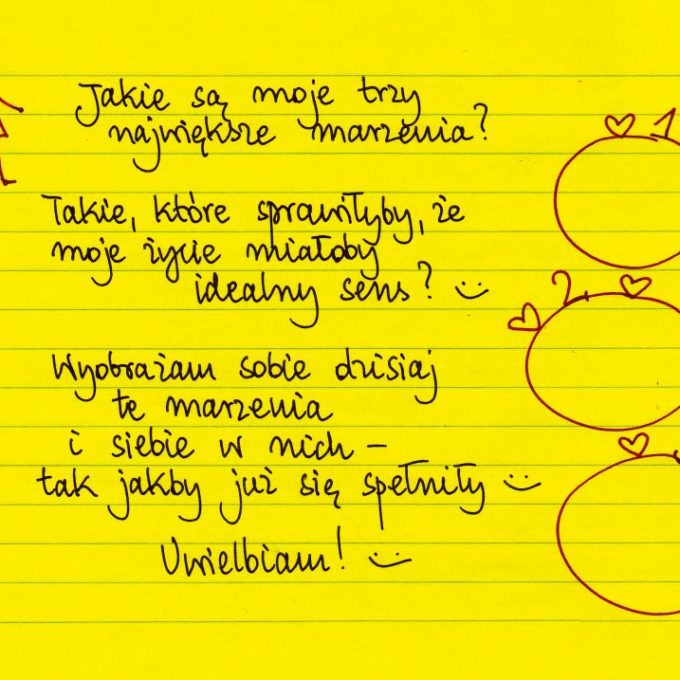 Jakie są moje trzy
największe marzenia?
Takie, które sprawiłyby, że
moje życie miałoby
idealny sens? :)
Wyobrażam sobie dzisiaj
te marzenia
i siebie w nich –
tak jakby już się spełniły :)
Uwielbiam! :)
1
2.